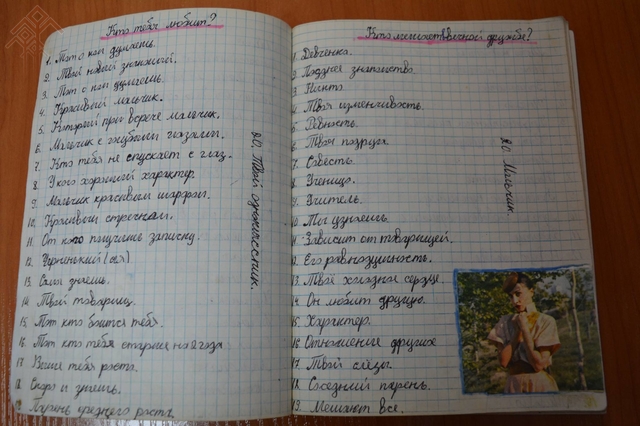 Кто тебя любит?
1. Тот о ком думаешь.
2. Твой новый знакомый.
3. Тот о ком думаешь.
4. Красивый мальчик.
5. Который при встрече мальчик.
6. Мальчик с голубыми глазами.
7. Кто тебя не спускает с глаз.
8. У кого хороший характер.
9. Мальчик красивым шарфом.
10. Красивый стрички.
11. От кого получишь записку.
12. Черненький (ая)
13. Сама знаешь.
14. Твой товарищ.
15. Тот кто боится тебя.
16. Тот кто тебя старше на 2 года
17. Выше тебя роста.
18. Скоро узнаешь.
19. Парень среднего роста
20. Твой одноклассник.
Кто мешает вечной дружбе?
1. Девченка.
2. Позднее знакомство
3. Никто
4. Твоя изменчивость.
5. Ревность.
6. Твоя подруга.
7. Совесть.
8. Училище.
9. Учитель.
10. Ты узнаешь.
11. Зависит от товарищей.
12. Его равнодушность.
13. Твое холодное сердце
14. Он любит другую.
15. Характер.
16. Отношение других
17. Твои слёзы
18. Соседний парень.
19. Мешают все.
20. Мальчик